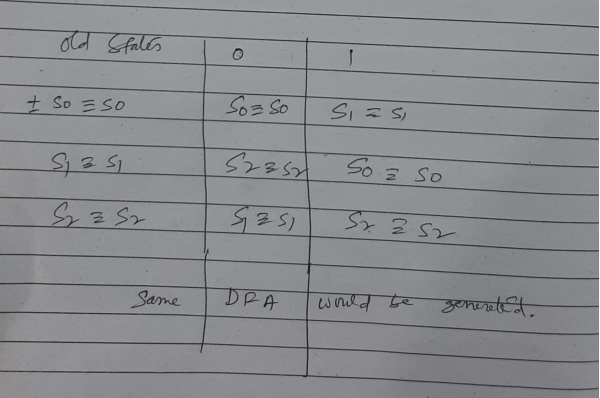 Old States 0 1
± S0 ≡ S0 S0 ≡ S0 S1 ≡ S1
S1 ≡ S1 S2 ≡ S2 S0 ≡ S0
S2 ≡ S2 S1 ≡ S1 S2 ≡ S2
Same DFA would be generated.